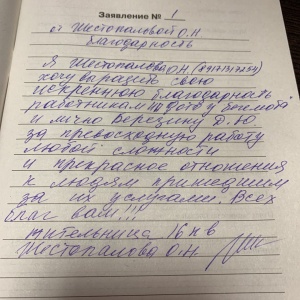 Заявление № 1
от Шестопаловой О.Н
Благодарность
Я Шестопалова О.Н (89171317254)
хочу выразить свою
искреннюю благодарнать
работникам у Бегемота
и лично Березину Д.Ю
за превосходную работу
любой сложности
и прекрасное отношения
к людям пришедшим
за их услугами. Всех
благ вам!!!
жительница 16 кв
Шестопалова О.Н.